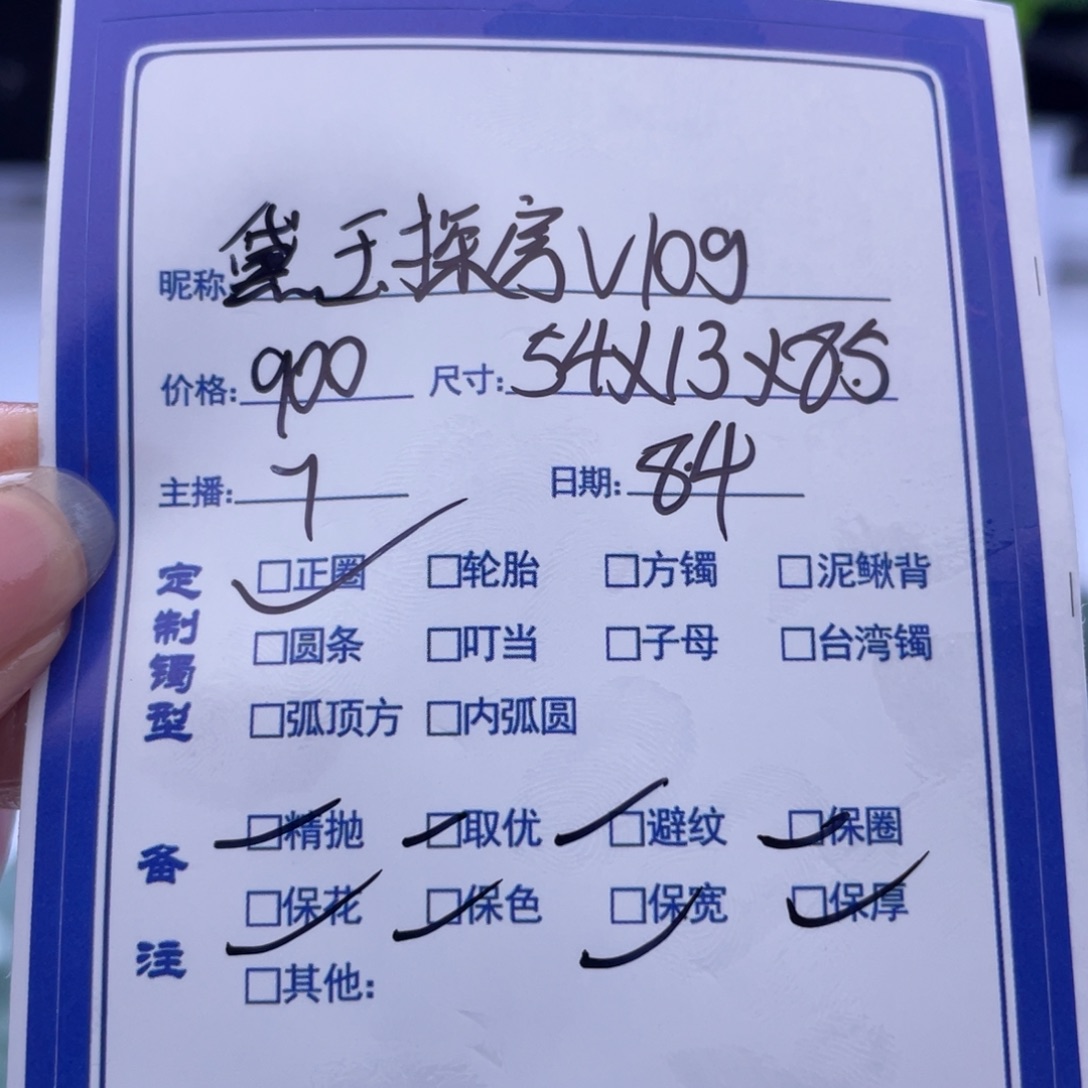 昵称黛玉探房Vlog
价格:900 尺寸:54X13X8.5
主播:7 日期:8.4
定制镯型
□正圈 □轮胎 □方镯 □泥鳅背
□圆条 □叮当 □子母 □台湾镯
□弧顶方 □内弧圆
备注
□精抛 □取优 □避纹 □保圈
□保花 □保色 □保宽 □保厚
□其他: